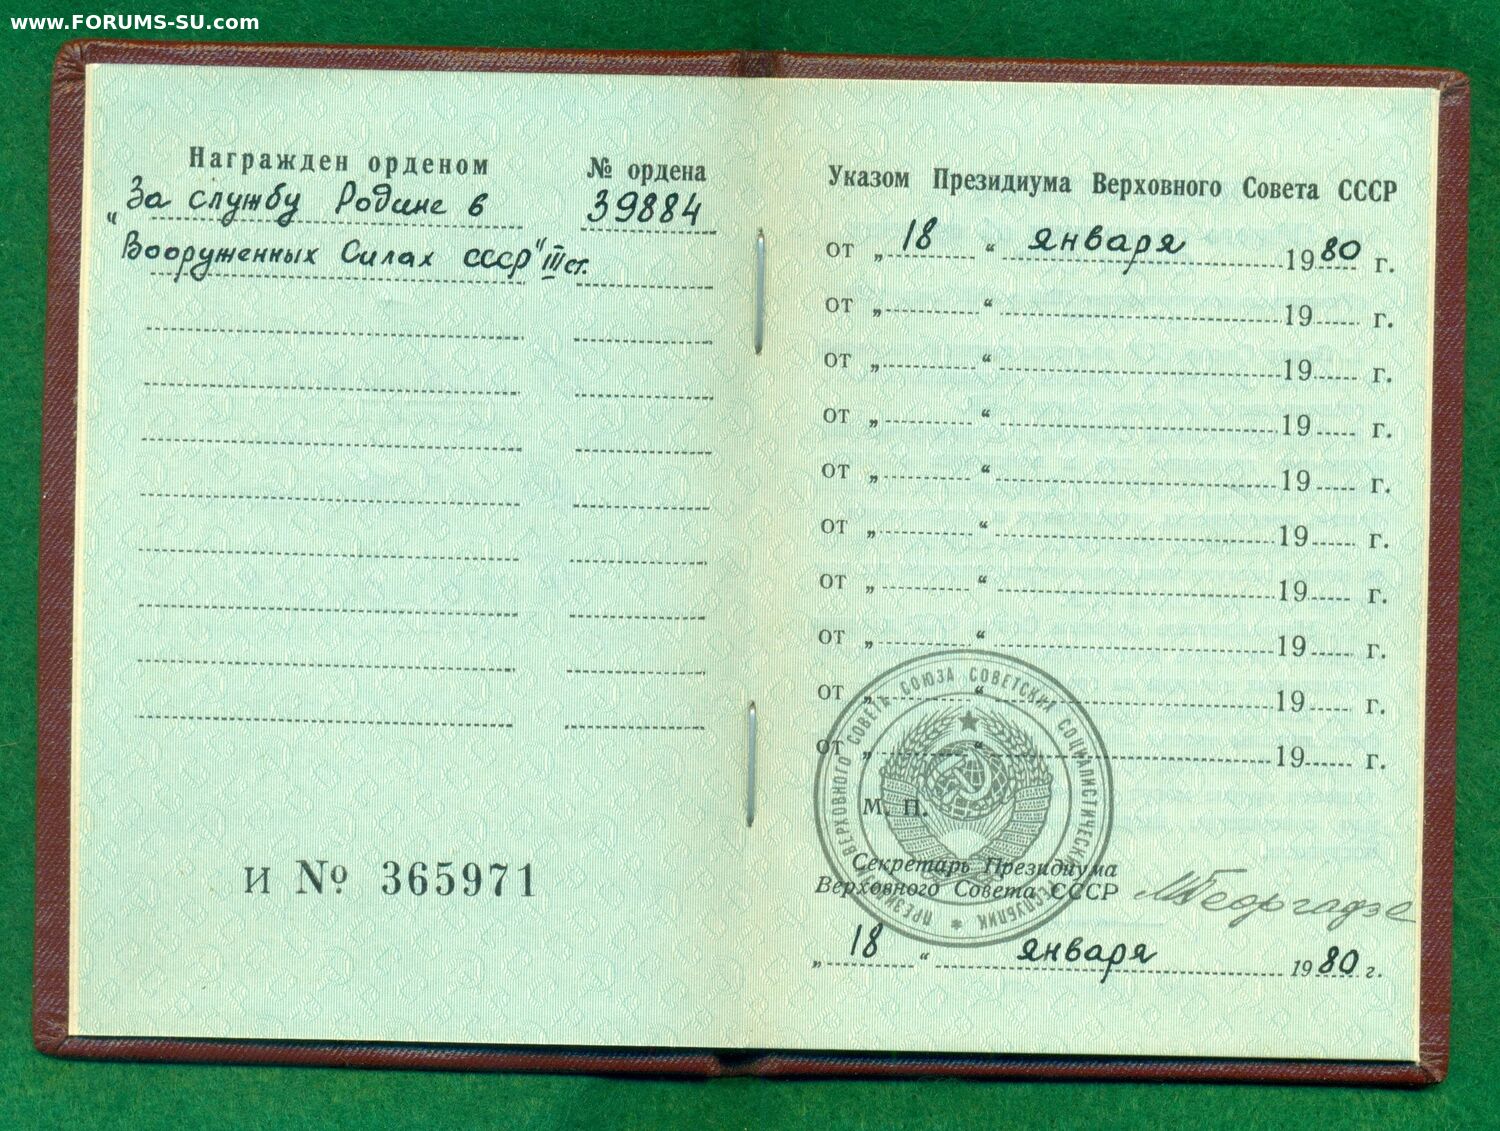 www.FORUMS-SU.com
Награжден орденом
№ ордена
„За службу Родине в
39884
Вооруженных Силах СССР" III ст.
И № 365971
Указом Президиума Верховного Совета СССР
от „ 18 “ января 1980 г.
от „ “ 19 г.
от „ “ 19 г.
от „ “ 19 г.
от „ “ 19 г.
от „ “ 19 г.
от „ “ 19 г.
от „ “ 19 г.
от „ “ 19 г.
от „ “ 19 г.
ПРЕЗИДИУМ ВЕРХОВНОГО СОВЕТА СОЮЗА СОВЕТСКИХ СОЦИАЛИСТИЧЕСКИХ РЕСПУБЛИК *
М. П.
Секретарь Президиума
Верховного Совета СССР
МГеоргадзе
„ 18 “ января 1980 г.